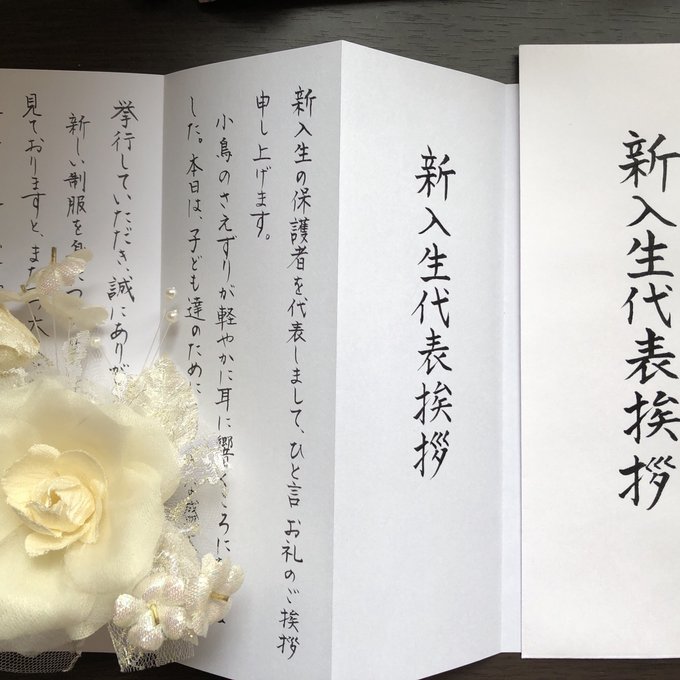 新入生代表挨拶
新入生代表挨拶
新入生の保護者を代表しまして、ひと言お礼のご挨拶
申し上げます。
小鳥のさえずりが軽やかに耳に響くころに
した。本日は、子ども達のために
挙行していただき、誠にありが
新しい制服を
見ておりますと、また一つ大